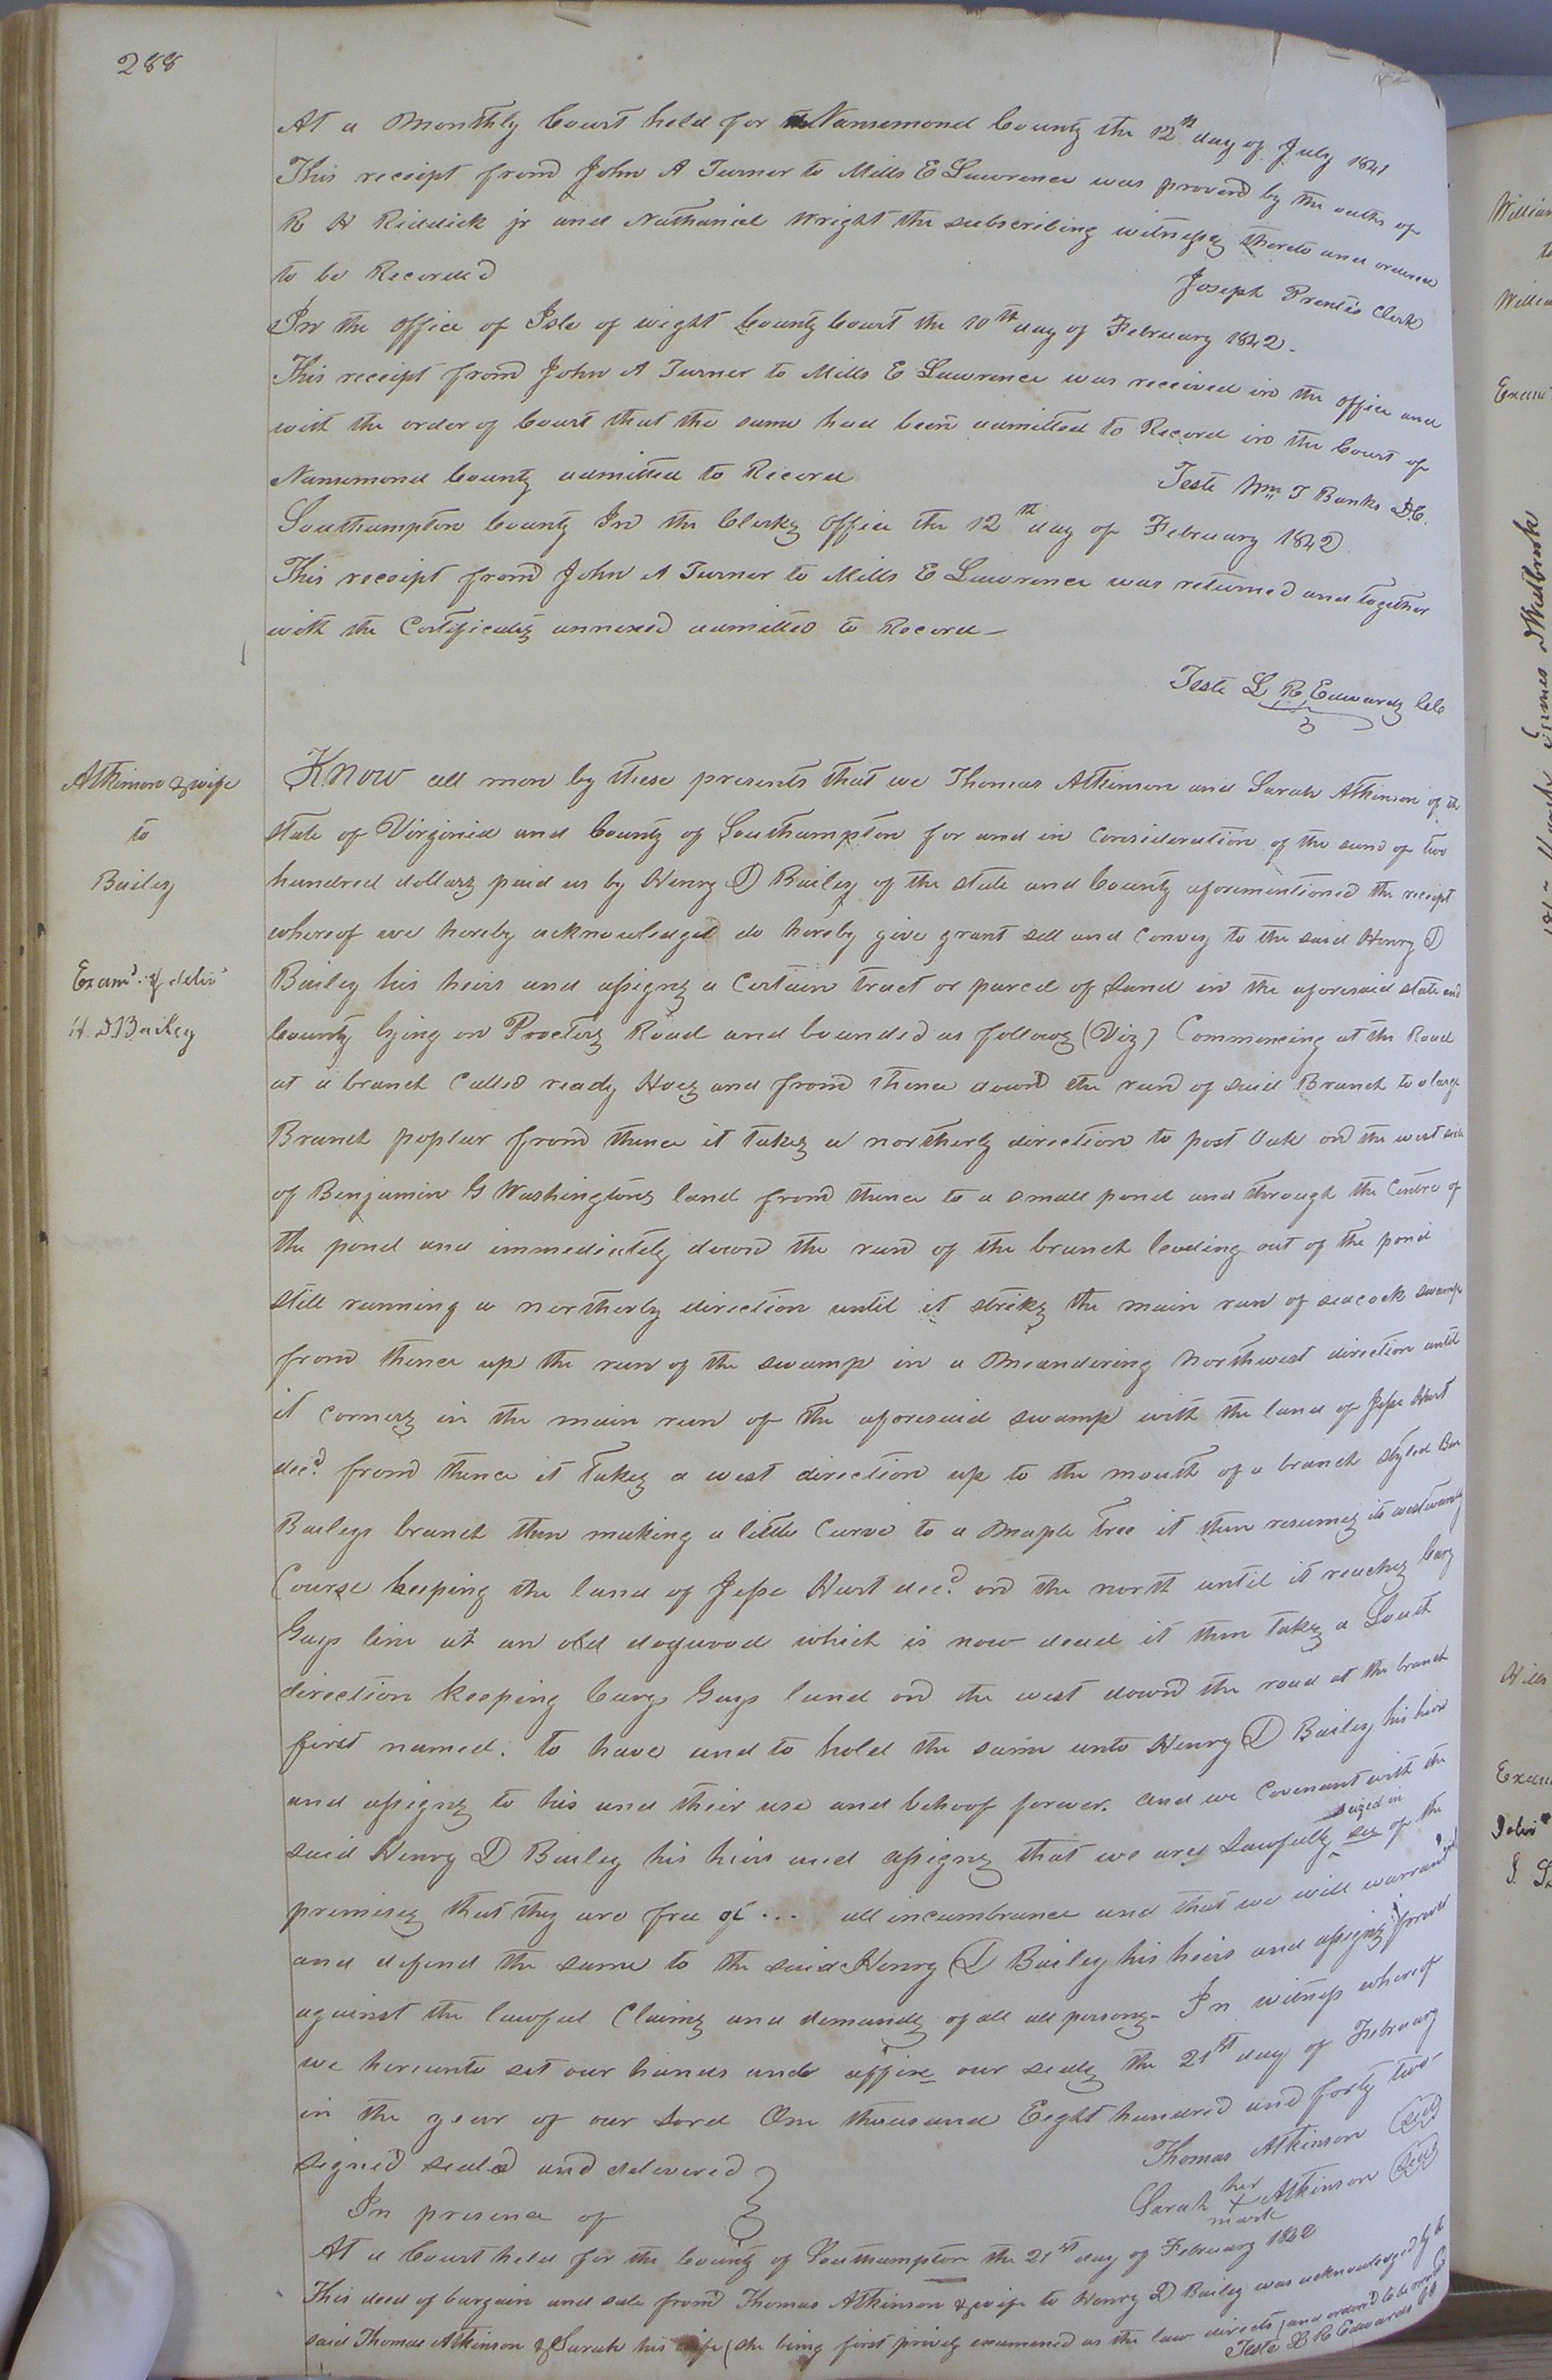 288
At a Monthly Court held for Nansemond County the 12th day of July 1841
This receipt from John A Turner to Mills E Lawrence was proved by the oaths of
R H Riddick jr and Nathaniel Wright the subscribing witnesses thereto and ordered
to be Recorded
Joseph Prentis Clerk
In the office of Isle of wight County Court the 10th day of February 1842.
This receipt from John A Turner to Mills E Lawrence was received in the office and
with the order of Court that the same had been admitted to Record in the Court of
Nansemond County admitted to Record
Teste Wm T Banks D.C.
Southampton County In the Clerks office the 12th day of February 1842
This receipt from John A Turner to Mills E Lawrence was returned and together
with the Certificates annexed admitted to Record —
Teste L R Edwards
Atkinson & wife
to
Bailey
Examd. & deliv
H. D. Bailey
Know all men by these presents that we Thomas Atkinson and Sarah Atkinson of the
state of Virginia and County of Southampton for and in Consideration of the sum of two
hundred dollars paid us by Henry D Bailey of the state and County aforementioned the receipt
whereof we hereby acknowledged do hereby give grant sell and Convey to the said Henry D
Bailey his heirs and assigns a Certain tract or parcel of Land in the aforesaid state and
County lying on Proctors Road and bounded as follows (Viz) Commencing at the Road
at a branch Called ready and from thence down the run of said Branch to a large
Branch poplar from thence it takes a northerly direction to post Oak on the west side
of Benjamin G Washingtons land from thence to a small pond and through the Centre of
the pond and immediately down the run of the branch leading out of the pond
still running a northerly direction until it strikes the main run of seacock swamp
from thence up the run of the swamp in a Meandering Northwest direction until
it Corners in the main run of the aforesaid swamp with the land of Jesse Hart
decd. from thence it takes a west direction up to the mouth of a branch styled Ben
Baileys branch then making a little Curve to a Maple Tree it then resumes its westwardly
Course keeping the land of Jesse Hart decd. on the north until it reaches Cary
Gays line at an old dogwood which is now dead it then takes a South
direction keeping Carys Gays land on the west down the road at the branch
first named. to have and to hold the same unto Henry D Bailey his heirs
and assigns to his and their use and behoof forever. and we Covenant with the
said Henry D Bailey his heirs and assigns that we are Lawfully seized in of the
premises that they are free of ... all incumbrance and that we will warrant
and defend the same to the said Henry D Bailey his heirs and assigns forever
against the lawful Claims and demands of all all persons - In witness whereof
we hereunto set our hands and affixe our seals the 21st day of February
in the year of our Lord One thousand Eight hundred and forty two
signed sealed and delivered
In presence of
Thomas Atkinson (seal)
Sarah her + mark Atkinson (seal)
At a Court held for the County of Southampton the 21st day of February 1842
This deed of bargain and sale from Thomas Atkinson & wife to Henry D Bailey was acknowledged by the
said Thomas Atkinson & Sarah his wife (she being first privily examined as the law directs) and ordered to be recorded
Teste L R Edwards